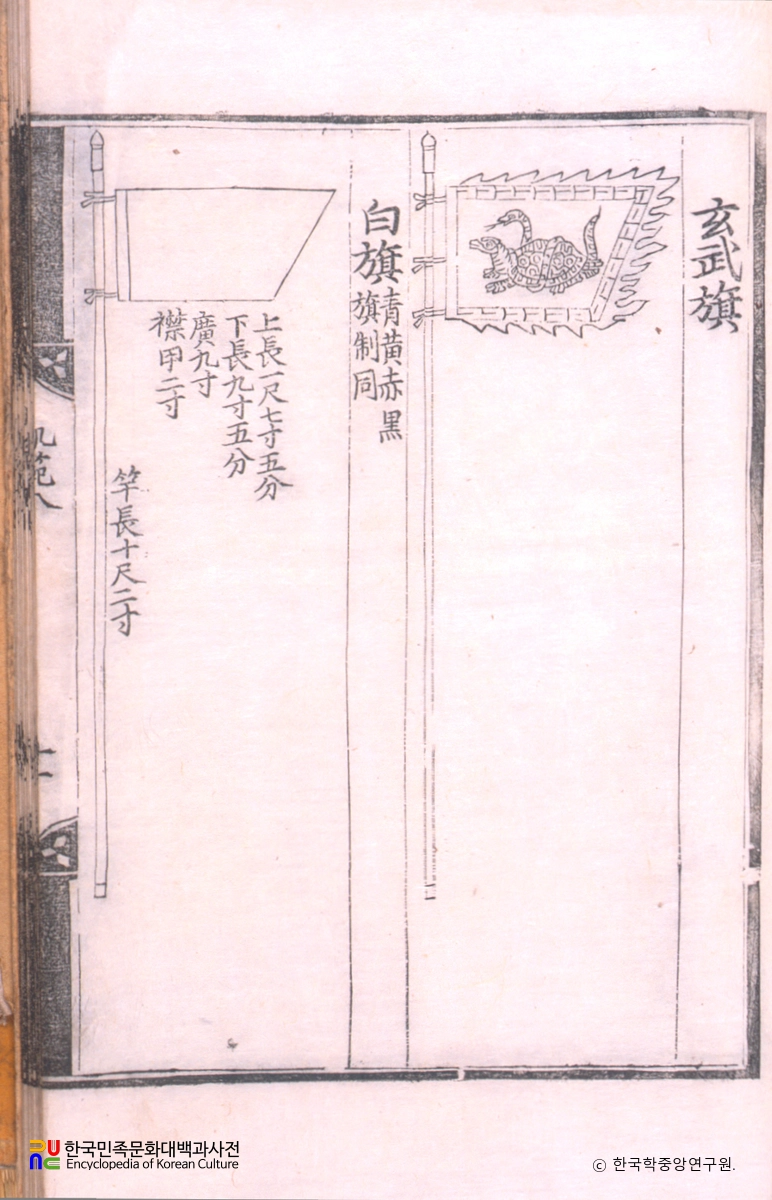 玄武旗
白旗 青黃赤黑
旗制同
上長一尺七寸五分
下長九寸五分
廣九寸
襟甲二寸
竿長十尺二寸
한국민족문화대백과사전
Encyclopedia of Korean Culture
© 한국학중앙연구원.